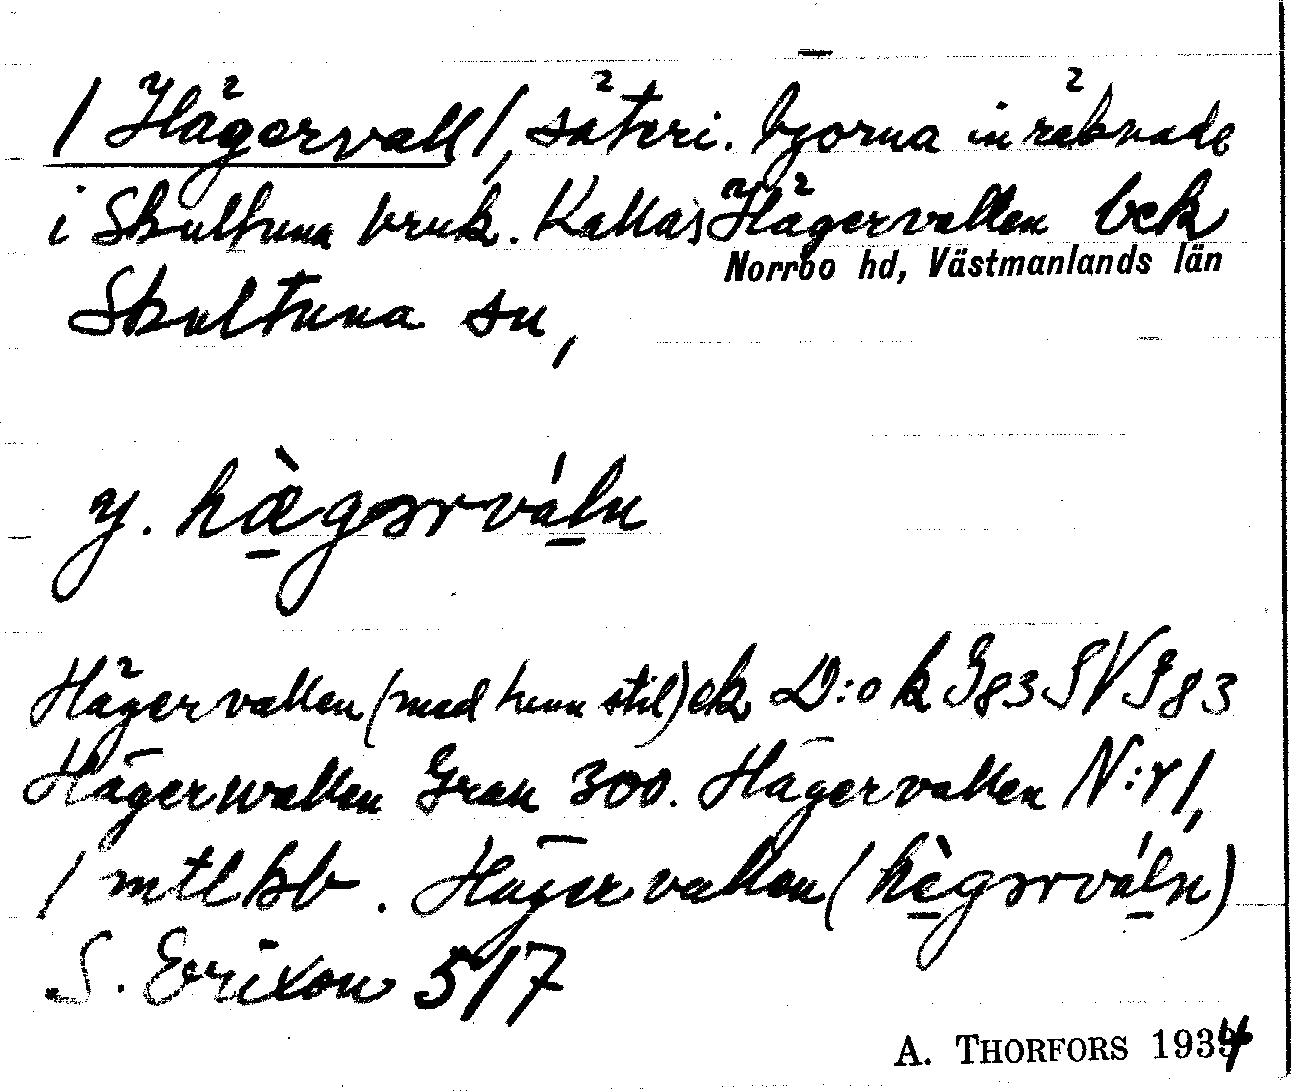 /Hägervall/, säteri. byorna inräknade
i Skultuna bruk. Kallas Hägervallen bek
Norrbo hd, Västmanlands län
Skultuna sn,
y. hæ̀gərrváln
Hägervallen (med tunn stil) ek D:o k G83 SV G83
Hägerwallen Gran 300. Hägervallen N:r 1,
1 mtl kb. Hägervallen (hègərrváln)
S. Erixon 5/7
A. THORFORS 1934